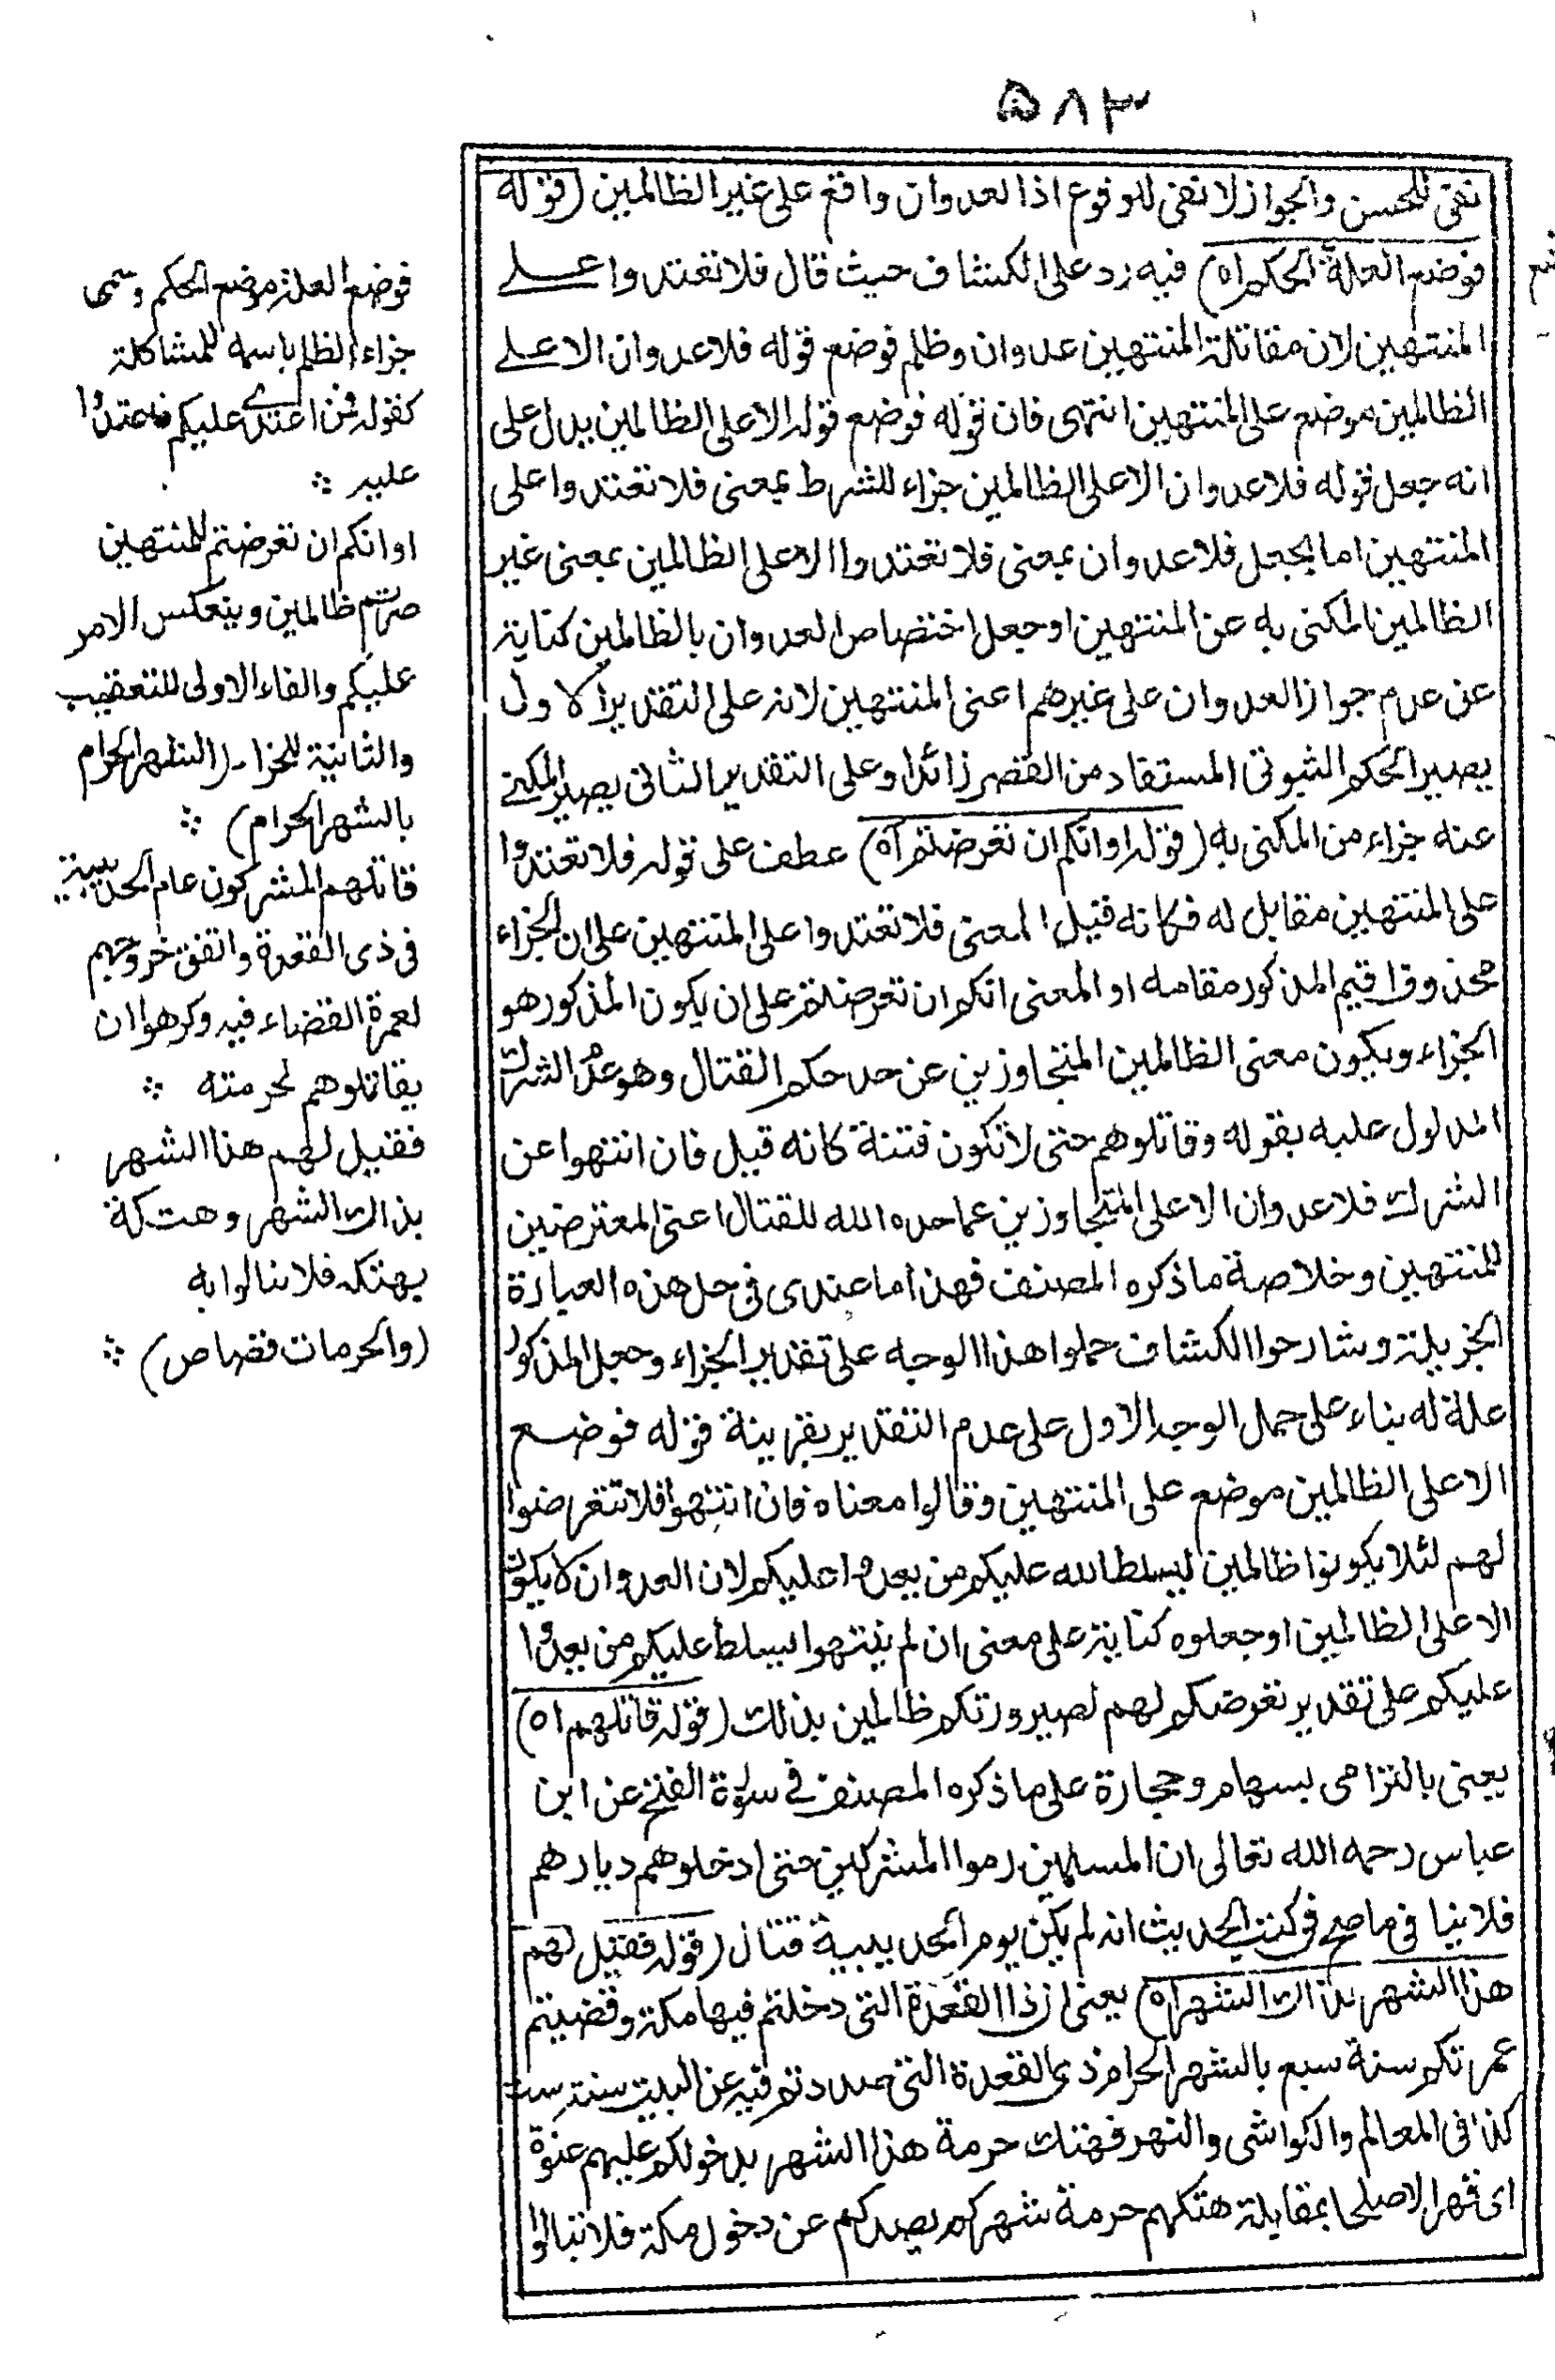 ٥٨٣
نفى للحسن والجواز لا نفى للوقوع اذ العدوان واقع على غير الظالمين (قوله
فوضع العلة الحكم اه) فيه رد على الكشاف حيث قال فلا تعتدوا على
المنتهين لان مقاتلة المنتهين عدوان وظلم فوضع قوله فلا عدوان الا على
الظالمين موضع على المنتهين انتهى فان قوله فوضع قوله الا على الظالمين يدل على
انه جعل قوله فلا عدوان الا على الظالمين جزاء للشرط بمعنى فلا تعتدوا على
المنتهين اما بجعل فلا عدوان بمعنى فلا تعتدوا الا على الظالمين بمعنى غير
الظالمين المكنى به عن المنتهين او جعل اختصاص العدوان بالظالمين كناية
عن عدم جواز العدوان على غيرهم اعنى المنتهين لانه على التقدير الاول
يصير الحكم الثبوتى المستفاد من القصر زائدا وعلى التقدير الثانى يصير المكنى
عنه جزاء من المكنى به (قوله او انكم ان تعرضتم اه) عطف على قوله فلا تعتدوا
على المنتهين مقابل له فكانه قيل المعنى فلا تعتدوا على المنتهين على ان الجزاء
محذوف اقيم المذكور مقامه او المعنى انكم ان تعرضتم على ان يكون المذكور هو
الجزاء ويكون معنى الظالمين المتجاوزين عن حد حكم القتال وهو عدم الشرك
المدلول عليه بقوله وقاتلوهم حتى لا تكون فتنة كانه قيل فان انتهوا عن
الشرك فلا عدوان الا على المتجاوزين عما حده الله للقتال اعنى المعترضين
للمنتهين وخلاصة ما ذكره المصنف فهذا ما عندى فى حل هذه العبارة
الجزيلة وشارحوا الكشاف حملوا هذا الوجه على تقدير الجزاء وجعل المذكور
علة له بناء على حمل الوجه الاول على عدم التقدير بقرينة قوله فوضع
الا على الظالمين موضع على المنتهين وقالوا معناه فان انتهوا فلا تتعرضوا
لهم لئلا يكونوا ظالمين ليسلط الله عليكم من يعدوا عليكم لان العدوان لا يكون
الا على الظالمين او جعلوه كناية على معنى ان لم ينتهوا يسلط عليكم من يعدوا
عليكم على تقدير تعرضكم لهم لصيرورتكم ظالمين بذلك (قوله قاتلهم اه)
يعنى بالترامى بسهام وحجارة على ما ذكره المصنف فى سورة الفتح عن ابن
عباس رحمه الله تعالى ان المسلمين رموا المشركين حتى ادخلوهم ديارهم
فلا ينافى ما صح فى كتب الحديث انه لم يكن يوم الحديبية قتال (قوله فقيل لهم
هذا الشهر بذاك الشهر اه) يعنى ان ذا القعدة التى دخلتم فيها مكة وقضيتم
عمرتكم سنة سبع بالشهر الحرام ذى القعدة التى صددتم فيه عن البيت سنة ست
كذا فى المعالم والكواشى والنهر فهتك حرمة هذا الشهر بدخولكم عليهم عنوة
اى قهرا لا صلحا بمقابلة هتكهم حرمة شهركم بصدكم عن دخول مكة فلا تبالوا
فوضع العلة موضع الحكم وسمى
جزاء الظلم باسمه للمشاكلة
كقوله فمن اعتدى عليكم فاعتدوا
عليه ؞
او انكم ان تعرضتم للمنتهين
صرتم ظالمين وينعكس الامر
عليكم والفاء الاولى للتعقيب
والثانية للجزاء (الشهر الحرام
بالشهر الحرام) ؞
قاتلهم المشركون عام الحديبية
فى ذى القعدة واتفق خروجهم
لعمرة القضاء فيه وكرهوا ان
يقاتلوهم لحرمته ؞
فقيل لهم هذا الشهر
بذاك الشهر وهتكه
بهتكه فلا بنالوا به
(والحرمات قصاص) ؞
ضع